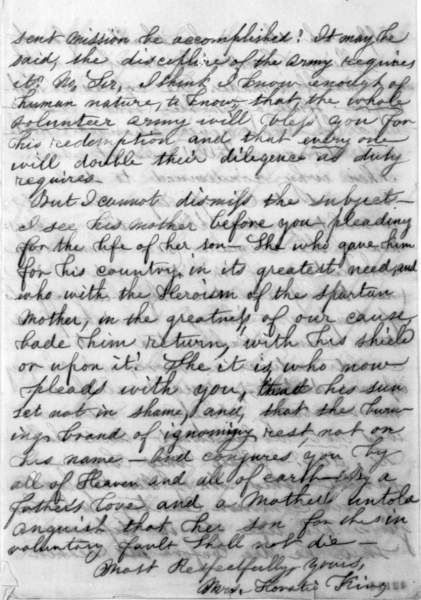 sent mission be accomplished? It may be
said, the discipline of the Army requires
it? No, Sir, I think I know enough of
human nature, to know that, the whole
volunteer army will bless you for
his redemption and that every one
will double their dilegence as duty
requires—
But I cannot dismiss the subject—
I see his mother before you pleading
for the life of her son— She who gave him
for his country, in its greatest need, and
who with the Heroism of the Spartan
Mother, in the greatness of our cause,
bade him return, "with his shield
or upon it." She it is, who now
pleads with you, that his sun
set not in shame, and, that the burn-
ing brand of ignominy rest not on
his name—and conjures you by
all of Heaven and all of earth—by a
father's love and a Mother's untold
anguish that her son for this in
voluntary fault shall not die—
Most Respectfully yours,
Mrs. Horatio King